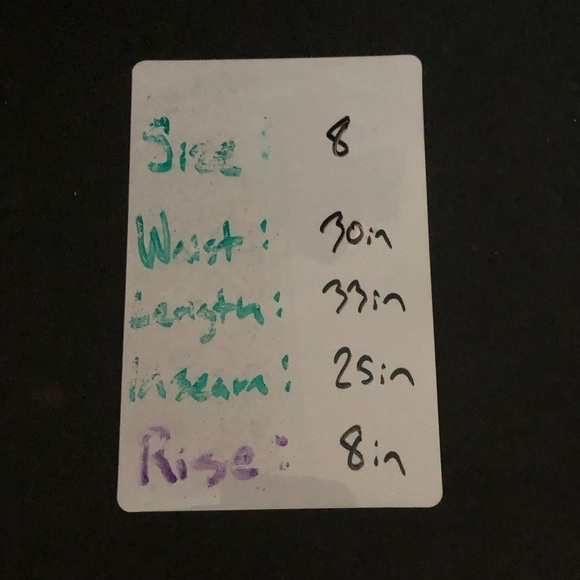 Size: 8
Waist: 30in
Length: 33in
Inseam: 25in
Rise: 8in